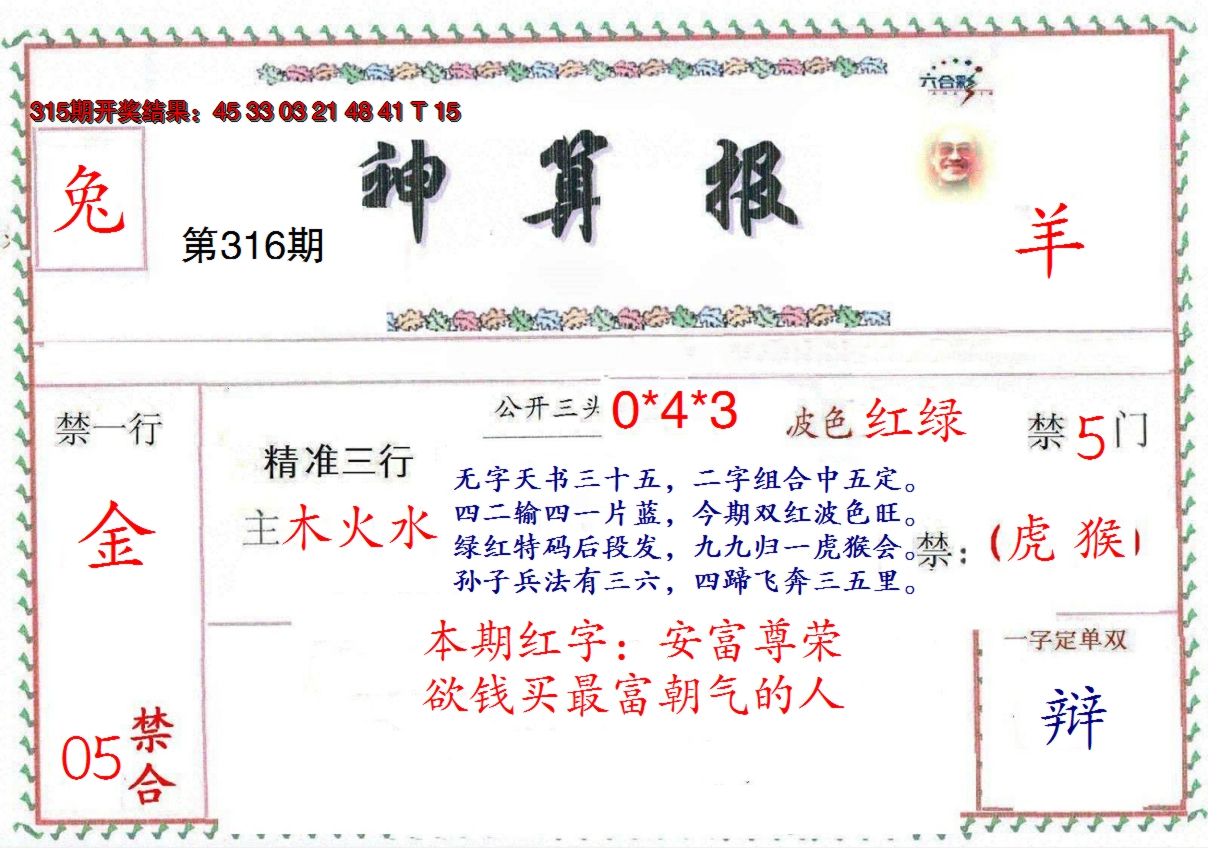 六合彩
315期开奖结果：45 33 03 21 48 41 T 15
神算报
兔
第316期
羊
禁一行
金
05 禁合
公开三头 0*4*3
波色 红绿
禁 5 门
精准三行
主木火水
无字天书三十五，二字组合中五定。
四二输四一片蓝，今期双红波色旺。
绿红特码后段发，九九归一虎猴会。
孙子兵法有三六，四蹄飞奔三五里。
禁：（虎 猴）
本期红字：安富尊荣
欲钱买最富朝气的人
一字定单双
辩